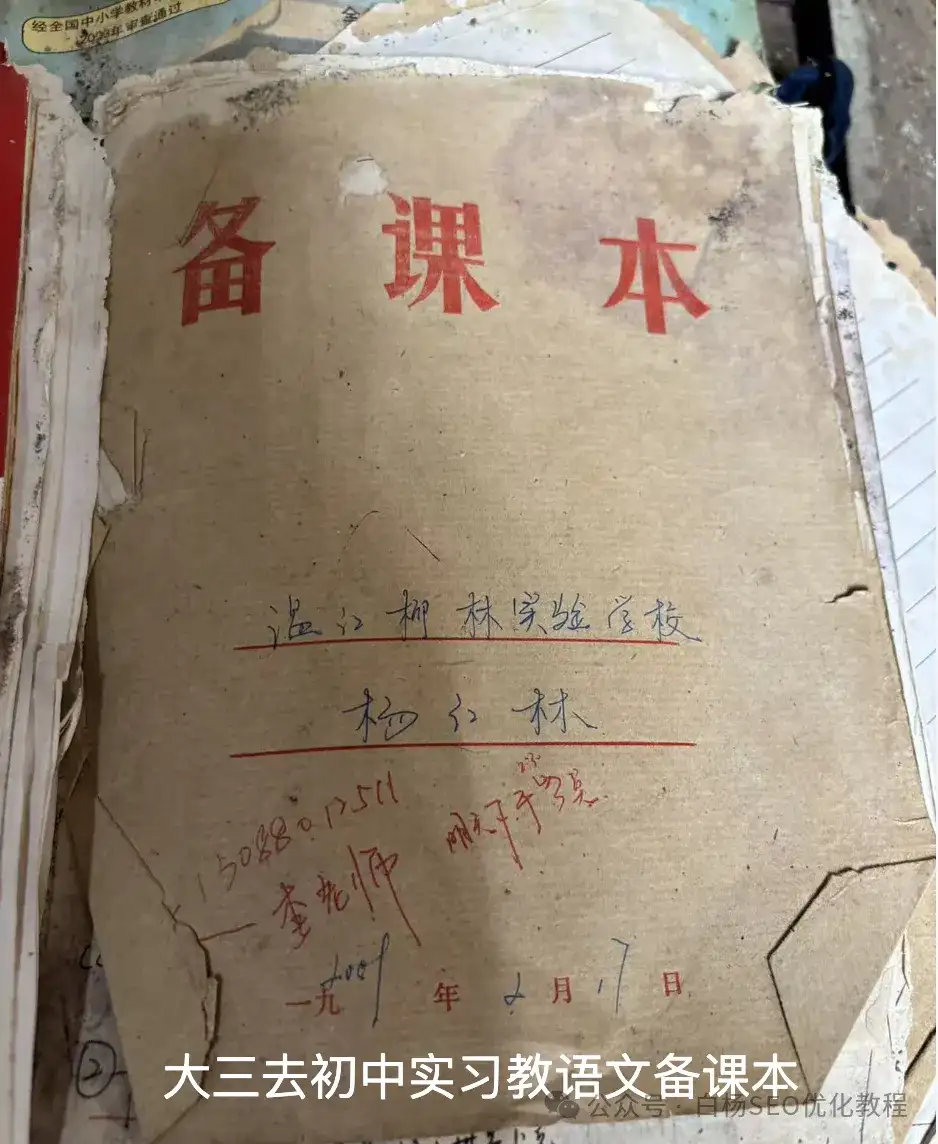 经全国中小学教材
审查通过
全
备课本
温江柳林实验学校
杨仁林
李老师
明天下午
一九2009年2月17日
②
大三去初中实习教语文备课本
公众号·白杨SEO优化教程